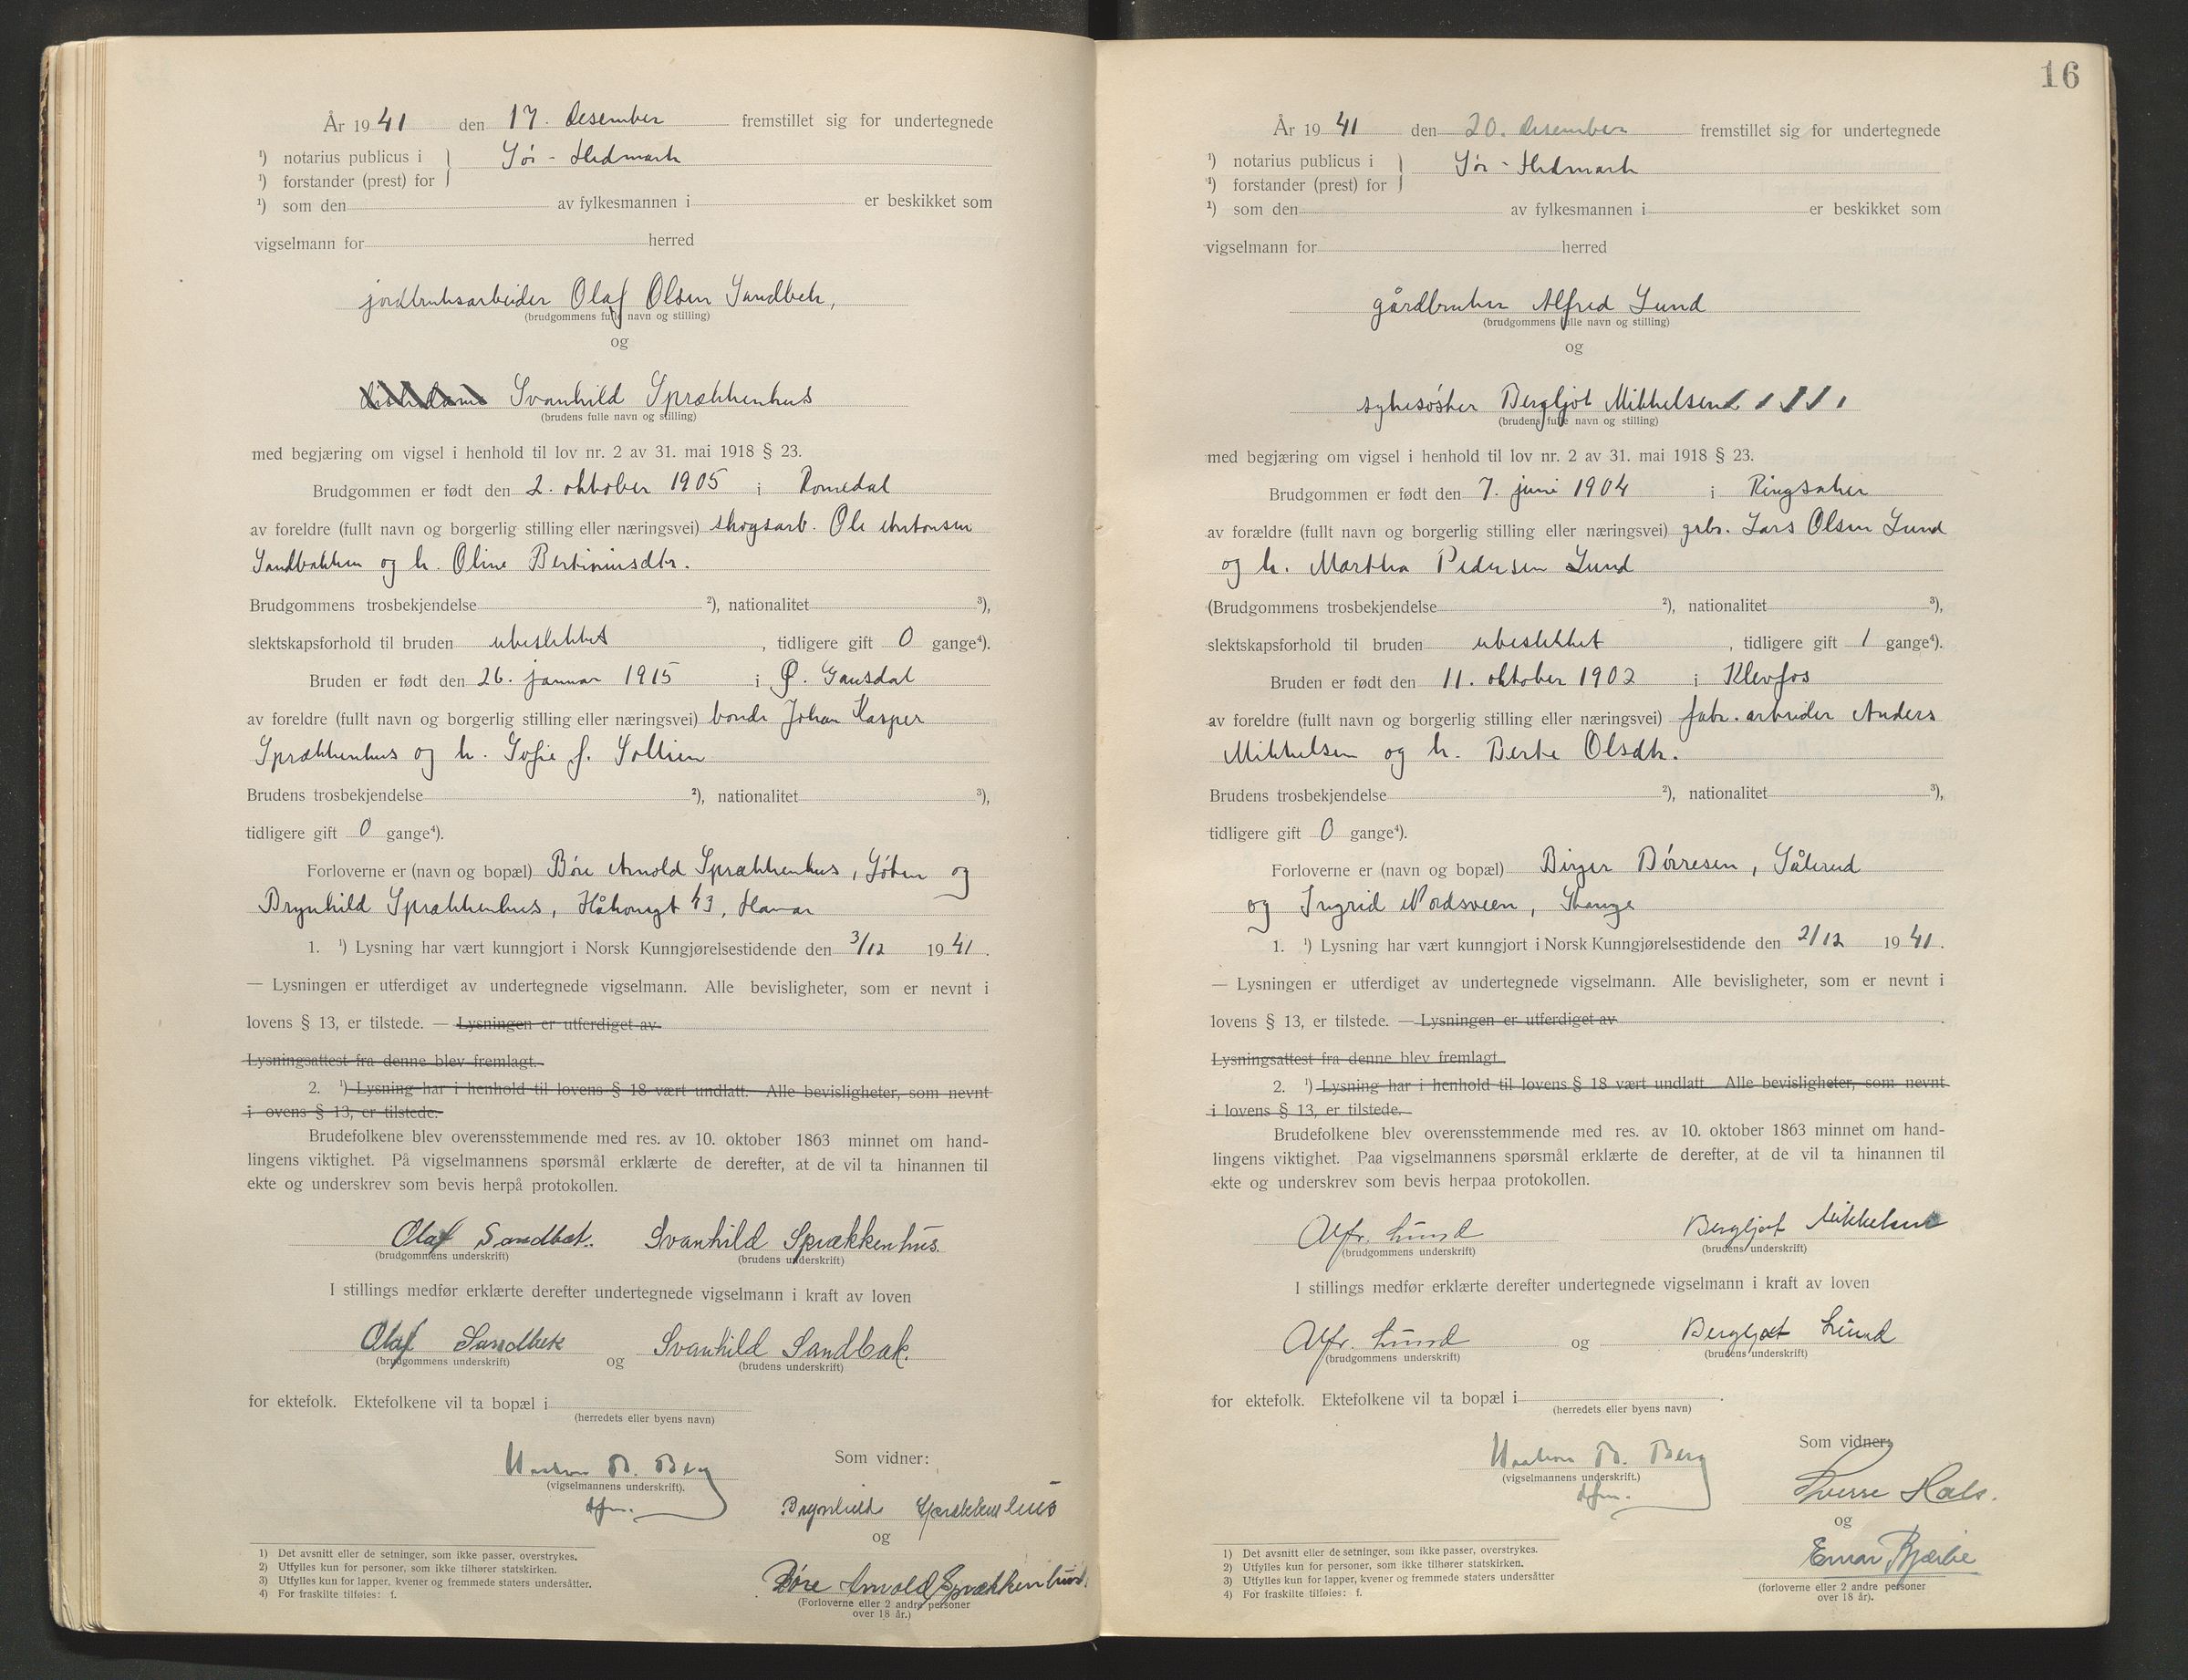 År 1941 den 17. desember fremstillet sig for undertegnede
¹) notarius publicus i } Sør-Hedmark
¹) forstander (prest) for
¹) som den av fylkesmannen i er beskikket som
vigselmann for herred
jordbruksarbeider Olaf Olsen Sandbek,
(brudgommens fulle navn og stilling)
og
Svanhild Sprækkenhus
(brudens fulle navn og stilling)
med begjæring om vigsel i henhold til lov nr. 2 av 31. mai 1918 § 23.
Brudgommen er født den 2. oktober 1905 i Romedal
av foreldre (fullt navn og borgerlig stilling eller næringsvei) skogsarb. Ole Antonsen
Sandbakken og h. Oline Bertiniusdtr.
Brudgommens trosbekjendelse ²), nationalitet ³),
slektskapsforhold til bruden ubeslektet, tidligere gift 0 gange⁴).
Bruden er født den 26. januar 1915 i Ø. Gausdal
av foreldre (fullt navn og borgerlig stilling eller næringsvei) bonde Johan Kasper
Sprækkenhus og h. Sofie f. Sollien
Brudens trosbekjendelse ²), nationalitet ³),
tidligere gift 0 gange⁴).
Forloverne er (navn og bopæl) Børe Arnold Sprækkenhus, Løten og
Brynhild Sprækkenhus, Håkonsgt 43, Hamar
1. ¹) Lysning har vært kunngjort i Norsk Kunngjørelsestidende den 3/12 1941.
— Lysningen er utferdiget av undertegnede vigselmann. Alle bevisligheter, som er nevnt i
lovens § 13, er tilstede. — Lysningen er utferdiget av
Lysningsattest fra denne blev fremlagt.
2. ¹) Lysning har i henhold til lovens § 18 vært undlatt. Alle bevisligheter, som nevnt
i ovens § 13, er tilstede.
Brudefolkene blev overensstemmende med res. av 10. oktober 1863 minnet om hand-
lingens viktighet. På vigselmannens spørsmål erklærte de derefter, at de vil ta hinannen til
ekte og underskrev som bevis herpå protokollen.
Olaf Sandbæk. Svanhild Sprækkenhus.
(brudgommens underskrift) (brudens underskrift)
I stillings medfør erklærte derefter undertegnede vigselmann i kraft av loven
Olaf Sandbek og Svanhild Sandbak.
(brudgommens underskrift) (brudens underskrift)
for ektefolk. Ektefolkene vil ta bopæl i
(herredets eller byens navn)
Haakon B. Berg
(vigselmannens underskrift).
dfm.
Som vidner:
Brynhild Sprækkenhus
og
Børe Arnold Sprækkenhus.
(Forloverne eller 2 andre personer
over 18 år.)
1) Det avsnitt eller de setninger, som ikke passer, overstrykes.
2) Utfylles kun for personer, som ikke tilhører statskirken.
3) Utfylles kun for lapper, kvener og fremmede staters undersåtter.
4) For fraskilte tilføies: f.
16
År 1941 den 20. desember fremstillet sig for undertegnede
¹) notarius publicus i } Sør-Hedmark
¹) forstander (prest) for
¹) som den av fylkesmannen i er beskikket som
vigselmann for herred
gårdbruker Alfred Lund
(brudgommens fulle navn og stilling)
og
sykesøster Bergljot Mikkelsen
(brudens fulle navn og stilling)
med begjæring om vigsel i henhold til lov nr. 2 av 31. mai 1918 § 23.
Brudgommen er født den 7. juni 1904 i Ringsaker
av forældre (fullt navn og borgerlig stilling eller næringsvei) grbr. Lars Olsen Lund
og h. Martha Pedersen Lund
(Brudgommens trosbekjendelse ²), nationalitet ³),
slektskapsforhold til bruden ubeslektet, tidligere gift 1 gange⁴).
Bruden er født den 11. oktober 1902 i Klevfos
av foreldre (fullt navn og borgerlig stilling eller næringsvei) fabr. arbeider Anders
Mikkelsen og h. Berte Olsdtr.
Brudens trosbekjendelse ²), nationalitet ³),
tidligere gift 0 gange⁴).
Forloverne er (navn og bopæl) Birger Børresen, Sålerud
og Ingrid Nordsveen, Stange
1. ¹) Lysning har vært kunngjort i Norsk Kunngjørelsestidende den 2/12 1941.
— Lysningen er utferdiget av undertegnede vigselmann. Alle bevisligheter, som er nevnt i
lovens § 13, er tilstede. — Lysningen er utferdiget av
Lysningsattest fra denne blev fremlagt.
2. ¹) Lysning har i henhold til lovens § 18 vært undlatt Alle bevisligheter, som nevnt
i lovens § 13, er tilstede.
Brudefolkene blev overensstemmende med res. av 10. oktober 1863 minnet om hand-
lingens viktighet. Paa vigselmannens spørsmål erklærte de derefter, at de vil ta hinannen til
ekte og underskrev som bevis herpaa protokollen.
Alfr. Lund Bergljot Mikkelsen
(brudgommens underskrift) (brudens underskrift)
I stillings medfør erklærte derefter undertegnede vigselmann i kraft av loven
Alfr. Lund og Bergljot Lund
(brudgommens underskrift) (brudens underskrift)
for ektefolk. Ektefolkene vil ta bopæl i .
(herredets eller byens navn)
Haakon B. Berg
(vigselmannens underskrift.)
dfm.
Som vidner:
Sverre Hals.
og
Einar Bjerke
(forloverne eller 2 andre personer
over 18 år).
1) Det avsnitt eller de setninger, som ikke passer, overstrykes.
2) Utfylles kun for personer, som ikke tilhører statskirken.
3) Utfylles kun for lapper, kvener og fremmede staters undersåtter
4) For fraskilte tilføies: f.